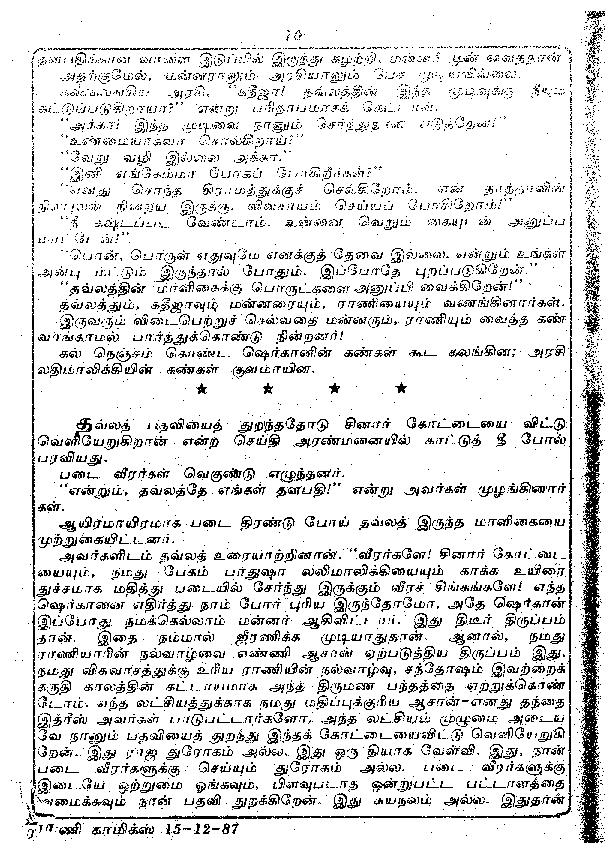 10
தளபதிக்கான வாளை இடுப்பில் இருந்து கழற்றி, மன்னர் முன் வைத்தான்
அதற்குமேல், மன்னராலும் அரசியாலும் பேச முடியவில்லை.
அரசி, "கதீஜா! தவ்லத்தின் இந்த முடிவுக்கு நீயும்
கட்டுப்படுகிறாயா?" என்று பரிதாபமாகக் கேட்டாள்.
"அக்கா! இந்த முடிவை நானும் சேர்ந்துதான் எடுத்தேன்!"
"உண்மையாகவா சொல்கிறாய்?"
"வேறு வழி இல்லை அக்கா."
"இனி எங்கேம்மா போகப் போகிறீர்கள்?"
"எனது சொந்த கிராமத்துக்குச் செல்கிறோம். என் தாத்தாவின்
நிலபுலம் நிறைய இருக்கு. விவசாயம் செய்யப் போகிறோம்!"
"நீ கஷ்டப்பட வேண்டாம். உன்னை வெறும் கையுடன் அனுப்ப
மாட்டேன்!"
"பொன், பொருள் எதுவுமே எனக்குத் தேவை இல்லை. என்றும் உங்கள்
அன்பு மட்டும் இருந்தால் போதும். இப்போதே புறப்படுகிறேன்."
"தவ்லத்தின் மாளிகைக்கு பொருட்களை அனுப்பி வைக்கிறேன்!"
தவ்லத்தும், கதீஜாவும் மன்னரையும், ராணியையும் வணங்கினார்கள்.
இருவரும் விடைபெற்றுச் செல்வதை மன்னரும், ராணியும் வைத்த கண்
வாங்காமல் பார்த்துக்கொண்டு நின்றனர்!
கல் நெஞ்சம் கொண்ட ஷெர்கானின் கண்கள் கூட கலங்கின; அரசி
லதிமாலிக்கியின் கண்கள் குளமாயின.
★ ★ ★ ★
தவ்லத் பதவியைத் துறந்ததோடு சினார் கோட்டையை விட்டு
வெளியேறுகிறான் என்ற செய்தி அரண்மனையில் காட்டுத் தீ போல்
பரவியது.
படை வீரர்கள் வெகுண்டு எழுந்தனர்.
"என்றும், தவ்லத்தே எங்கள் தளபதி!" என்று அவர்கள் முழங்கினார்
கள்.
ஆயிரமாயிரமாக படை திரண்டு போய் தவ்லத் இருந்த மாளிகையை
முற்றுகையிட்டனர்.
அவர்களிடம் தவ்லத் உரையாற்றினான். "வீரர்களே! சினார் கோட்டை
யையும், நமது பேகம் பர்துஷா லலிமாலிக்கியையும் காக்க உயிரை
துச்சமாக மதித்து படையில் சேர்ந்து இருக்கும் வீரச் சிங்கங்களே! எந்த
ஷெர்கானை எதிர்த்து நாம் போர் புரிய இருந்தோமோ, அதே ஷெர்கான்
இப்போது நமக்கெல்லாம் மன்னர் ஆகிவிட்டார். இது திடீர் திருப்பம்
தான். இதை நம்மால் ஜீரணிக்க முடியாதுதான். ஆனால், நமது
ராணியாரின் நல்வாழ்வை எண்ணி ஆசான் ஏற்படுத்திய திருப்பம் இது,
நமது விசுவாசத்துக்கு உரிய ராணியின் நல்வாழ்வு, சந்தோஷம் இவற்றைக்
கருதி காலத்தின் கட்டாயமாக அந்த் திருமண பந்தத்தை ஏற்றுக்கொண்
டோம். எந்த லட்சியத்துக்காக நமது மதிப்புக்குரிய ஆசான்-எனது தந்தை
இத்ரீஸ் அவர்கள் பாடுபட்டார்களோ, அந்த லட்சியம் முழுமை அடைய
வே நானும் பதவியைத் துறந்து இந்தக் கோட்டையைவிட்டு வெளியேறுகி
றேன். இது ராஜ துரோகம் அல்ல. இது ஒரு தியாக வேள்வி. இது, நான்
படை வீரர்களுக்கு செய்யும் துரோகம் அல்ல. படை வீரர்களுக்கு
இடையே ஒற்றுமை ஓங்கவும், பிளவுபடாத ஒன்றுபட்ட பட்டாளத்தை
அமைக்கவும் நான் பதவி துறக்கிறேன். இது சுயநலம் அல்ல. இதுதான்
ராணி காமிக்ஸ் 15-12-87